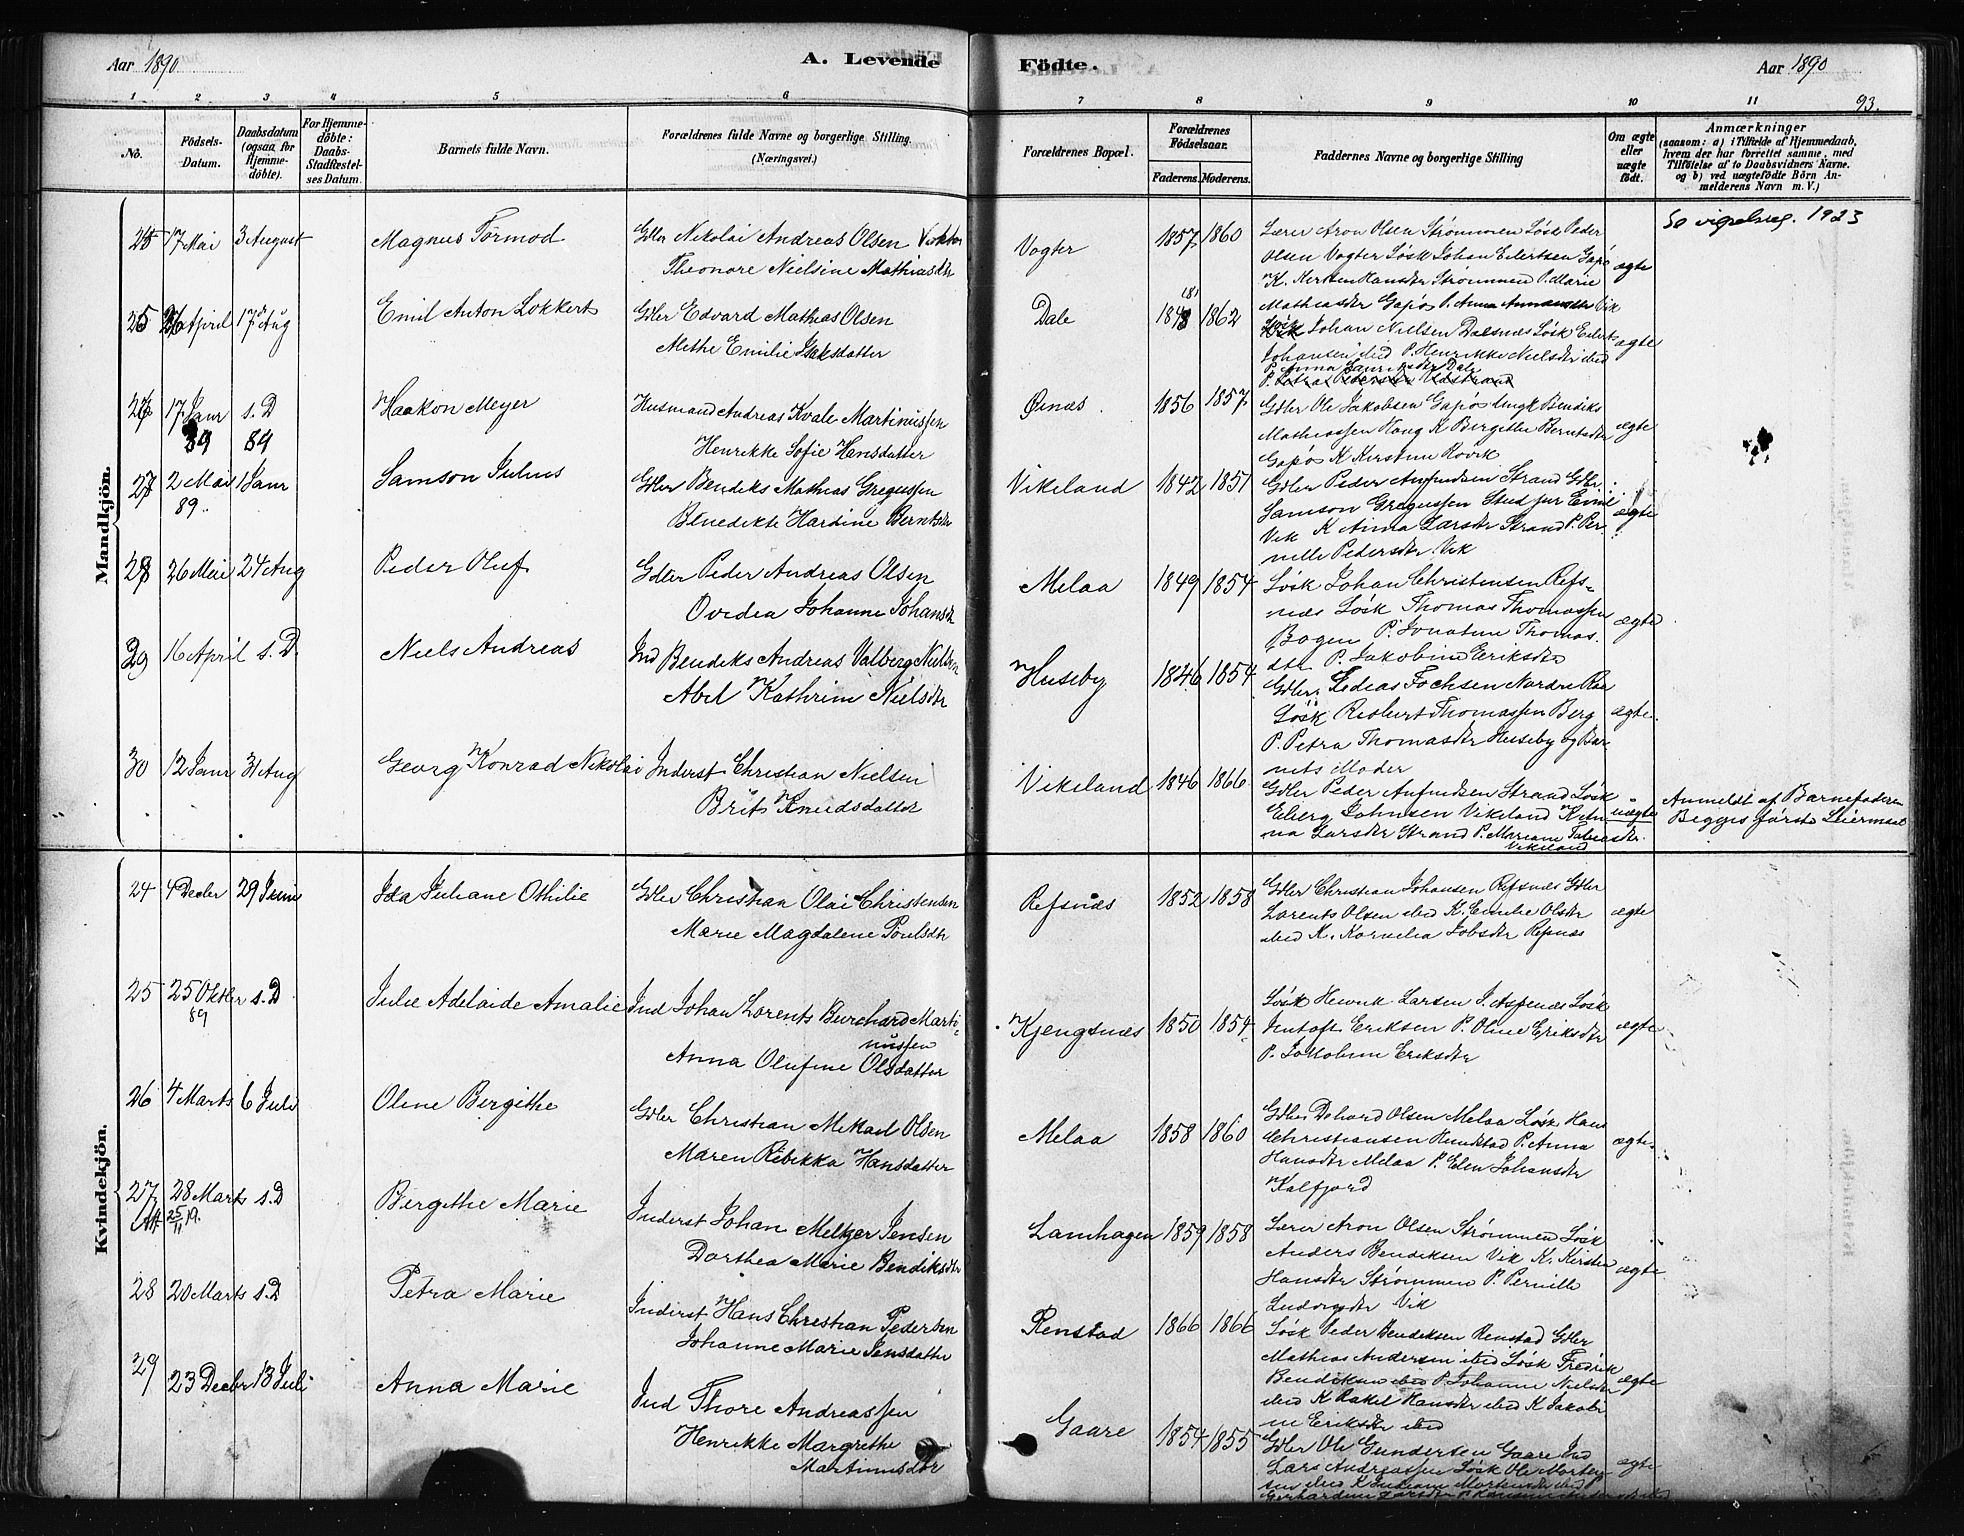 Aar 1890
A. Levende
Födte.
Aar 1890
1 2 3 4 5 6 7 8 9 10 11 93.
No.
Födsels-Datum.
Daabsdatum (ogsaa for Hjemme-döbte).
For Hjemme-döbte: Daabs-Stadfæstel-ses Datum.
Barnets fulde Navn.
Forældrenes fulde Navne og borgerlige Stilling.
(Næringsvei.)
Forældrenes Bopæl.
Forældrenes Födselsaar.
Faderens. Moderens.
Faddernes Navne og borgerlige Stilling
Om ægte eller uægte födt.
Anmærkninger
(saasom: a) i Tilfælde af Hjemmedaab, hvem der har forrettet samme, med Tilföielse af to Daabsvidners Navne. og b) ved uægtefödte Börn An-melderens Navn m. V.)
Mandkjön.
17 Mai 3 August Magnus Tormod
Gdbr Nikolai Andreas Olsen
Theonore Nielsine Mathiasdtr
Vogter 1857 1860
Lærer Aron Olsen Strømmen Løsk Peder
Olsen Vogter Løsk Johan Eilertsen Gapø
Strømmen P. Marie
ægte
1923
April 17 Aug Emil Anton Lokkert
Gdbr Edvard Mathias Olsen
Alethe Emilie Isaksdatter
Dale 1862
Johan Nielsen Dalsnæs Løsk Eilert
Johansen ibid P. Henrikke Nielsdtr ibid
ægte
17 Janr s. D Haakon Meyer
89 84
Husmand Andreas Kvale Martinussen
Henrikke Sofie Hansdatter
Ørnæs 1856 1857
Gdbr Ole Jakobsen Gapøs Ungk Bendiks
Mathiassen Haug K Bergitte Berntsdtr
Gapøs K Kirstine Rovik
ægte
2 Mai 1 Janr Samson Julius
89
Gdbr Bendiks Mathias Gregussen
Benedikte Hardine Berntsdtr
Vikeland 1842 1857
Gdbr Peder Anfindsen Strand Gdbr
Samson Gregussen Stud jur Emil
Vik K Anna Larsdtr Strand P. Per-
nelle Pedersdtr Vik
ægte
28 26 Mai 24 Aug Peder Oluf
Gdbr Peder Andreas Olsen
Ovidea Johanne Johansdtr
Melaa 1849 1854
Løsk Johan Christensen Refs-
næs Løsk Thomas Thomassen
Bogen P. Jonatine Thomas-
dtr P. Jakobine Eriksdtr
ægte
29 16 April s. D. Niels Andreas
Ind Bendiks Andreas Valberg Nielsen
Abel Kathrine Nielsdtr
Huseby 1846 1854
Gdbr Fochsen Nordre Raa
Løsk Richert Thomassen Berg
P. Petra Thomasdtr Huseby og Bar
nets Moder
ægte.
30 12 Janr 31 Aug Georg Konrad Nikolai
Inderst Christian Nielsen
Brit Knudsdatter
Vikeland 1846 1866
Gdbr Peder Anfindsen Strand Løsk
Eberg Johnsen Vikeland K An
na Larsdtr Strand P. Mariane Tobiasdtr.
Vikeland
uægte
Anmeldt af Barnefaderen
Begges første Leiermaal
Kvindekjön.
24 4 Decbr 29 Juni Ida Juliane Othilie
Gdbr Christian Olai Christensen
Marie Magdalene Poulsdtr
Refsnæs 1852 1858
Gdbr Christian Johansen Refsnæs Gdbr
Lorents Olsen ibid K. Emilie Olsdtr
ibid K. Kornelia Jobsdtr Refsnæs
ægte
25 25 Oktbr s. D Julie Adelaide Amalie
89
Ind Johan Lorents Burchard Marti-
nussen
Anna Olufine Olsdatter
Kjengsnæs 1850 1854
Løsk Henrik Larsen I. Aspenæs Løsk
Jentoft Eriksen P. Oline Eriksdtr
P. Jakobine Eriksdtr
ægte
26 4 Marts 6 Juli Oline Bergithe
Gdbr Christian Mikael Olsen
Maren Rebikka Hansdatter
Melaa 1858 1860
Gdbr Dehard Olsen Melaa Løsk Hans
Christiansen Hundstad P. Anna
Hansdtr Melaa P. Elen Johansdtr
Kalfjord
ægte
27 28 Marts s. D Bergithe Marie
Att 25/11 19.
Inderst Johan Meltzer Jensen
Dorthea Marie Bendiksdtr
Lamhagen 1859 1858
Lærer Aron Olsen Strømmen Løsk
Anders Bendiksen Vik K. Kirsten
Hansdtr Strømmen P. Pernille
Ludvigsdtr Vik
ægte
28 20 Marts s. D Petra Marie
Inderst Hans Christian Pedersen
Johanne Marie Jensdatter
Renstad 1866 1866
Løsk Peder Bendiksen Renstad Gdbr
Mathias Andersen ibid Løsk Fredrik
Bendiksen ibid P. Johanne Nielsdtr
ibid K Rakel Hansdtr ibid K Jakobi
ne Eriksdtr ibid
ægte
29 23 Decbr 13 Juli Anna Marie
Ind Thore Andreassen
Henrikke Margrethe
Martinusdtr
Gaare 1854 1855
Gdbr Ole Gundersen Gaare Ind
Lars Andreassen Løsk Ole Morten
sen ibid
ægte